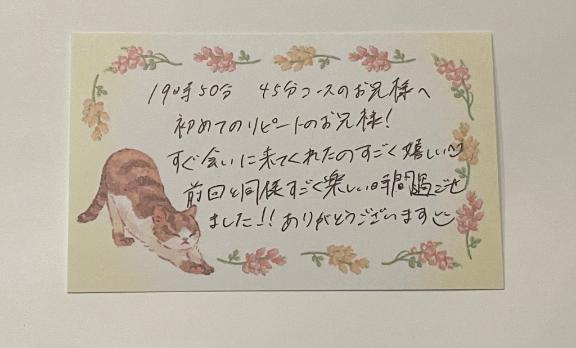 19時50分 45分コースのお兄様へ
初めてのリピートのお兄様!
すぐ会いに来てくれたのすごく嬉しい
前回と同様すごく楽しい時間過ごせ
ました!! ありがとうございます